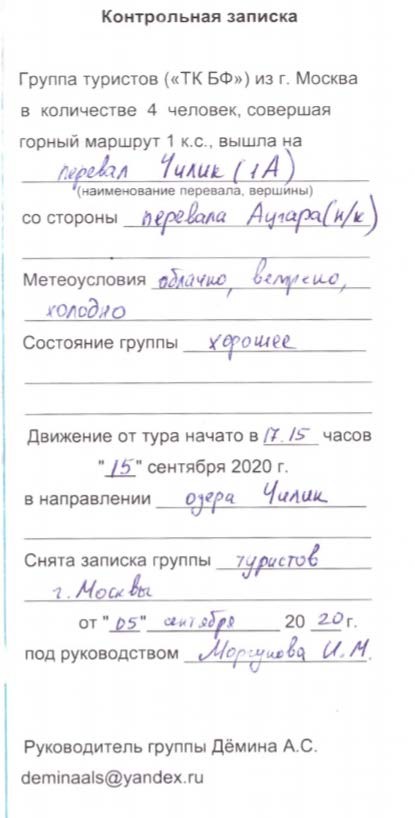 Контрольная записка
Группа туристов («ТК БФ») из г. Москва
в количестве 4 человек, совершая
горный маршрут 1 к.с., вышла на
перевал Чилик (1А)
(наименование перевала, вершины)
со стороны перевала Аугара (н/к)
Метеоусловия облачно, ветрено,
холодно
Состояние группы хорошее
Движение от тура начато в 17.15 часов
"15" сентября 2020 г.
в направлении озера Чилик
Снята записка группы туристов
г. Москвы
от "05" сентября 2020г.
под руководством Моргунова И.М.
Руководитель группы Дёмина А.С.
deminaals@yandex.ru